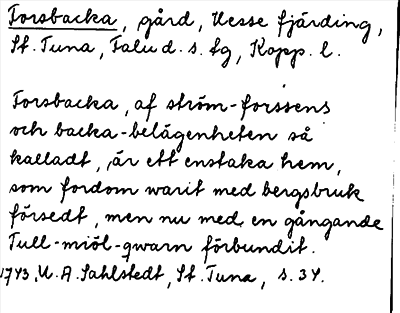 Forsbacka, gård, Uesse fjärding,
St. Tuna, Falu d. s. lg, Kopp. l.
Forsbacka, af ström-forssens
och backa-belägenheten så
kalladt, är ett enstaka hem,
som fordom warit med bergsbruk
försedt, men nu med en gångande
Tull-miöl-qwarn förbundit.
1743, U. A. Sahlstedt, St. Tuna, s. 34.